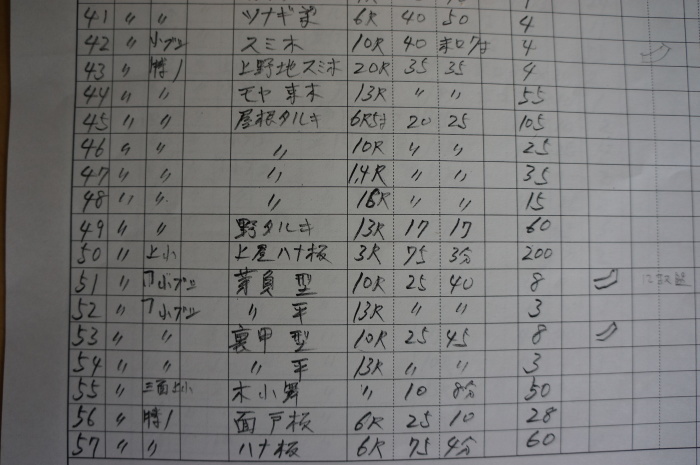 41 〃 〃 ツナギ梁 6尺 40 50 4
42 〃 小ブシ スミ木 10尺 40 末口7寸 4
43 〃 特1 上野地スミ木 20尺 35 35 4
44 〃 〃 モヤ束木 13尺 〃 〃 55
45 〃 〃 屋根タルキ 6尺5寸 20 25 105
46 〃 〃 〃 10尺 〃 〃 25
47 〃 〃 〃 14尺 〃 〃 35
48 〃 〃 〃 16尺 〃 〃 15
49 〃 〃 野タルキ 13尺 17 17 60
50 〃 上小 上屋ハナ板 3尺 75 3分 200
51 〃 小ブシ 茅負 型 10尺 25 40 8
52 〃 小ブシ 〃 平 13尺 〃 〃 3
53 〃 〃 裏甲 型 10尺 25 45 8
54 〃 〃 〃 平 13尺 〃 〃 3
55 〃 三面上小 木小舞 〃 10 8分 50
56 〃 特1 面戸板 6尺 25 10 28
57 〃 〃 ハナ板 6尺 75 4分 60